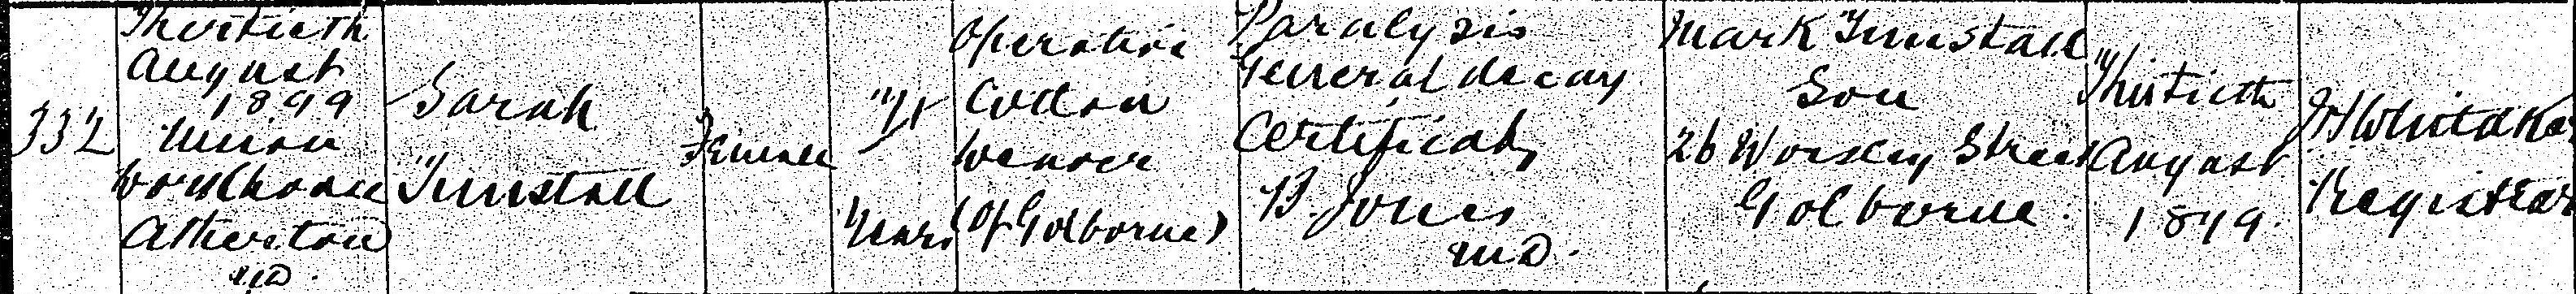 332
Thirtieth
August
1899
Union
Workhouse
Atherton
U.D.
Sarah
Tunstall
Female
71
Years
Operative
Cotton
Weaver
(Of Golborne)
Paralysis
General decay
Certified by
B. Jones
M.D.
Mark Tunstall
Son
26 Worsley Street
Golborne.
Thirtieth
August
1899.
J H Whitaker
Registrar